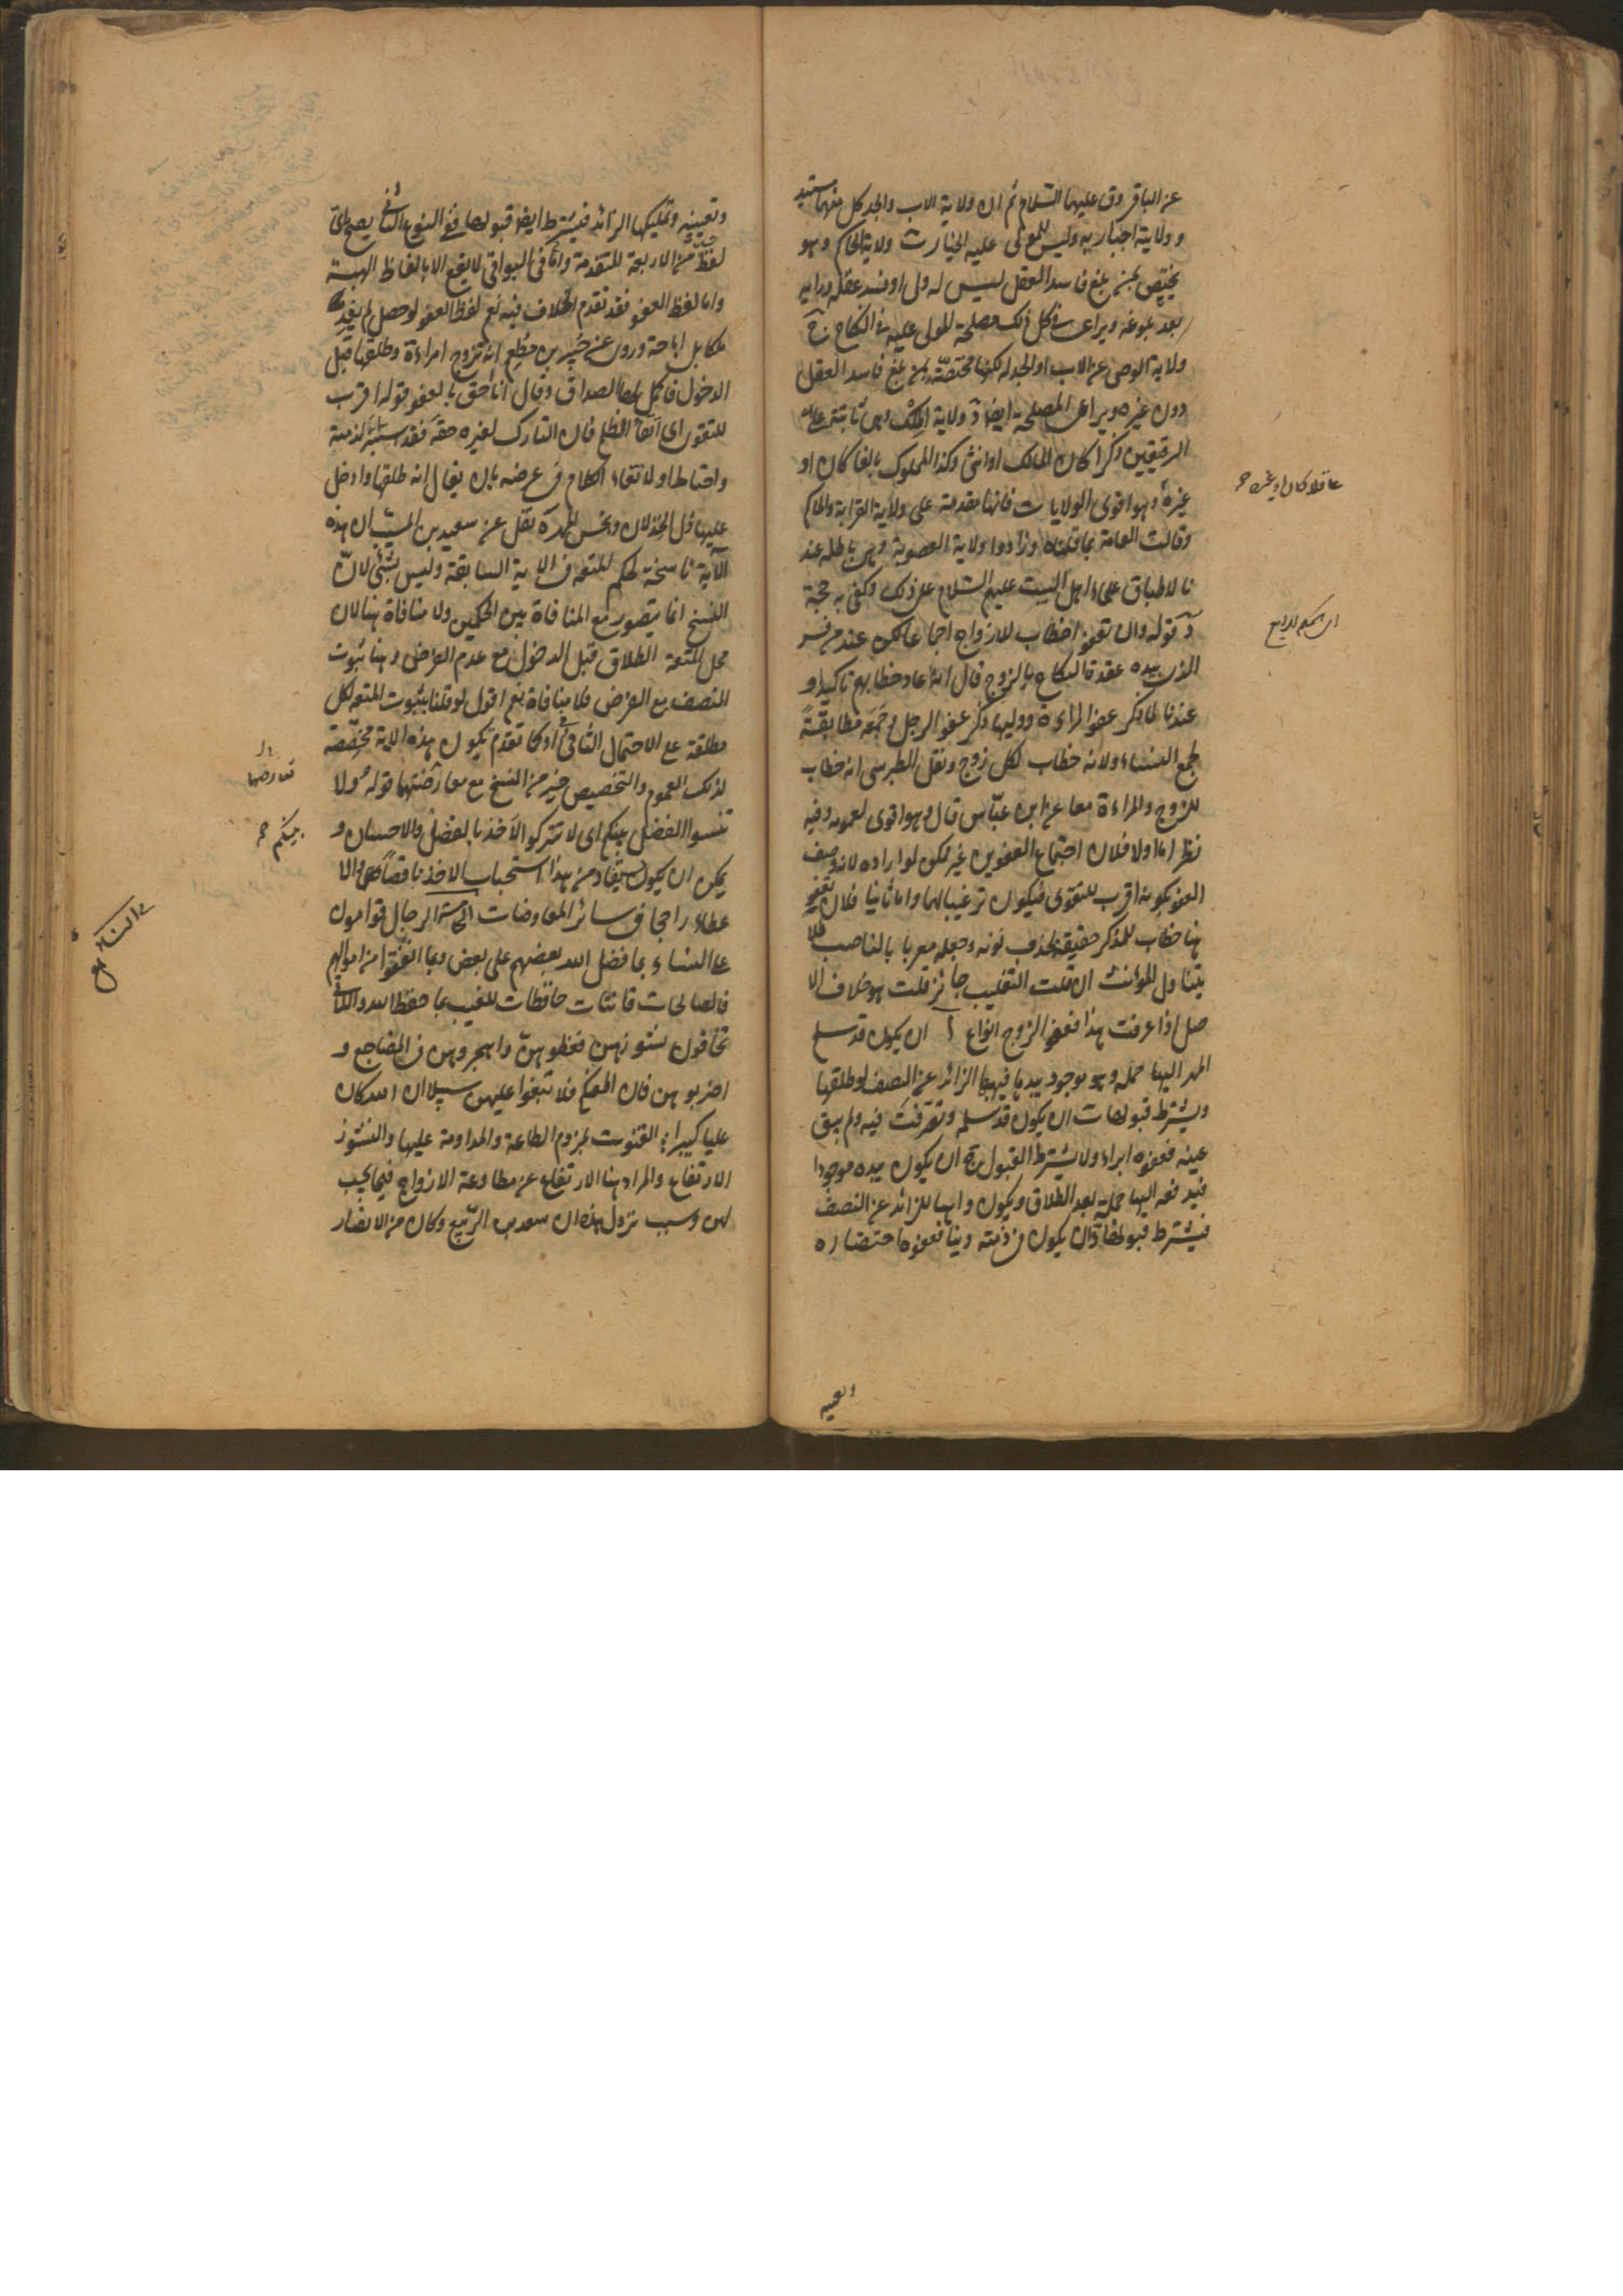 عن الباقر وق عليهما السلام ثم ان ولاية الاب والجد كل منهما مستبد
و ولايته اجباريه وليس للمولى عليه الخيار ث ولاية الحاكم وهو
يختص بمن بلغ فاسد العقل ليس له ولى او فسد عقله ورايه
بعد بلوغه ويراعى فى كل ذلك مصلحة المولى عليه فى النكاح ج
ولاية الوصى عن الاب او الجد له لكنها مختصة بمن بلغ فاسد العقل
دون غيره ويراعى المصلحة ايضا د ولاية الملك وهى ثابتة على
الرقيقين ذكرا كان المالك او انثى وكذا المملوك بالغا كان او
غيره وهو اقوى الولايات فانها مقدمة على ولاية القرابة والحاكم
وقالت العامة بما قلناه وزادوا ولاية العصوبة وهى باطله عند
نا لاطباق علماء اهل البيت عليهم السلام على ذلك وكفى به حجة
د قوله وان تعفوا خطاب للازواج اجماعا لكن عند من فسر
الذى بيده عقدة النكاح بالزوج قال انه اعاد خطابهم تاكيدا و
عندنا لما ذكر عفو المراءة ووليها ذكر عفو الرجل وجمعه مطابقة
لجمع النساء ولانه خطاب لكل زوج ونقل الطبرسى انه خطاب
للزوج والمراءة معا عن ابن عباس قال وهو اقوى لعمومه وفيه
نظر اما اولا فلان اجتماع العفوين غير ممكن لو اراده لانه وصف
العفو بكونه اقرب للتقوى فيكون ترغيبا لهما واما ثانيا فلان تعفوا
هنا خطاب للمذكر حقيقة لحذف نونه وجعله معربا بالناصب فلا
يتناول المؤنث ان قلت التغليب جائز قلت هو خلاف الا
صل اذا عرفت هذا فعفو الزوج انواع آ ان يكون قد سلم
المهر اليها جملة وهو موجود بيدها فيهبها الزائد عن النصف لو طلقها
ويشترط قبولها ب ان يكون قد سلمه وتصرفت فيه ولم يبق
عينه فعفوه ابراء ولا يشترط القبول ج ان يكون بيده موجودا
فيدفعه اليها جملة بعد الطلاق ويكون واهبا للزائد عن النصف
فيشترط قبولها د ان يكون فى ذمته دينا فعفوه احتضاره
عاقلا كان او غيره
اى الحكم الرابع
وتعيينه وتمليكها الزائد فيشترط ايضا قبولها ففى النوع الثانى يصح باى
لفظ من الاربعة المتقدمة واما فى البواقى لا يقع الا بالفاظ الهبة
واما لفظ العفو فقد تقدم الخلاف فيه نعم لفظ العفو لو حصل لم يفد
ملكا بل اباحة وروى عن جبير بن مطعم انه تزوج امراءة وطلقها قبل
الدخول فاكمل لها الصداق وقال انا احق بالعفو قوله اقرب
للتقوى اى اتقاء الظلم فان التارك لغيره حقه فقد استبرء لذمته
واحتاط او لاتقاء الكلام فى عرضه بان يقال انه طلقها وادخل
عليها ذل الخذلان وبخس المهر ه نقل عن سعيد بن المسيب ان هذه
الآية ناسخة لحكم المتعه فى الاية السابقة وليس بشئ لان
النسخ انما يتصور مع المنافاة بين الحكمين ولا منافاة هنا لان
محل المتعة الطلاق قبل الدخول مع عدم الفرض وهنا ثبوت
النصف مع الفرض فلا منافاة نعم اقول لو قلنا بثبوت المتعه لكل
مطلقة على الاحتمال الثانى كما تقدم يكون هذه الاية مخصصة
لذلك العموم والتخصيص خير من النسخ مع معارضتهما قوله ولا
تنسوا الفضل بينكم اى لا تتركوا الاخذ بالفضل والاحسان و
يمكن ان يكون يستفاد من هذا استحباب الاخذ ناقصا والا
عطاء راجحا فى سائر المعاوضات الخامسة الرجال قوامون
على النساء بما فضل الله بعضهم على بعض وبما انفقوا من اموالهم
فالصالحات قانتات حافظات للغيب بما حفظ الله واللاتى
تخافون نشوزهن فعظوهن واهجروهن فى المضاجع و
اضربوهن فان اطعنكم فلا تبغوا عليهن سبيلا ان الله كان
عليا كبيرا : القنوت لزوم الطاعة والمداومة عليها والنشوز
الارتفاع والمراد هنا الارتفاع عن مطاوعة الازواج فيما يجب
لهن وسبب نزول هذه ان سعد بن الربيع وكان من الانصار
تعارضهما
بينكم